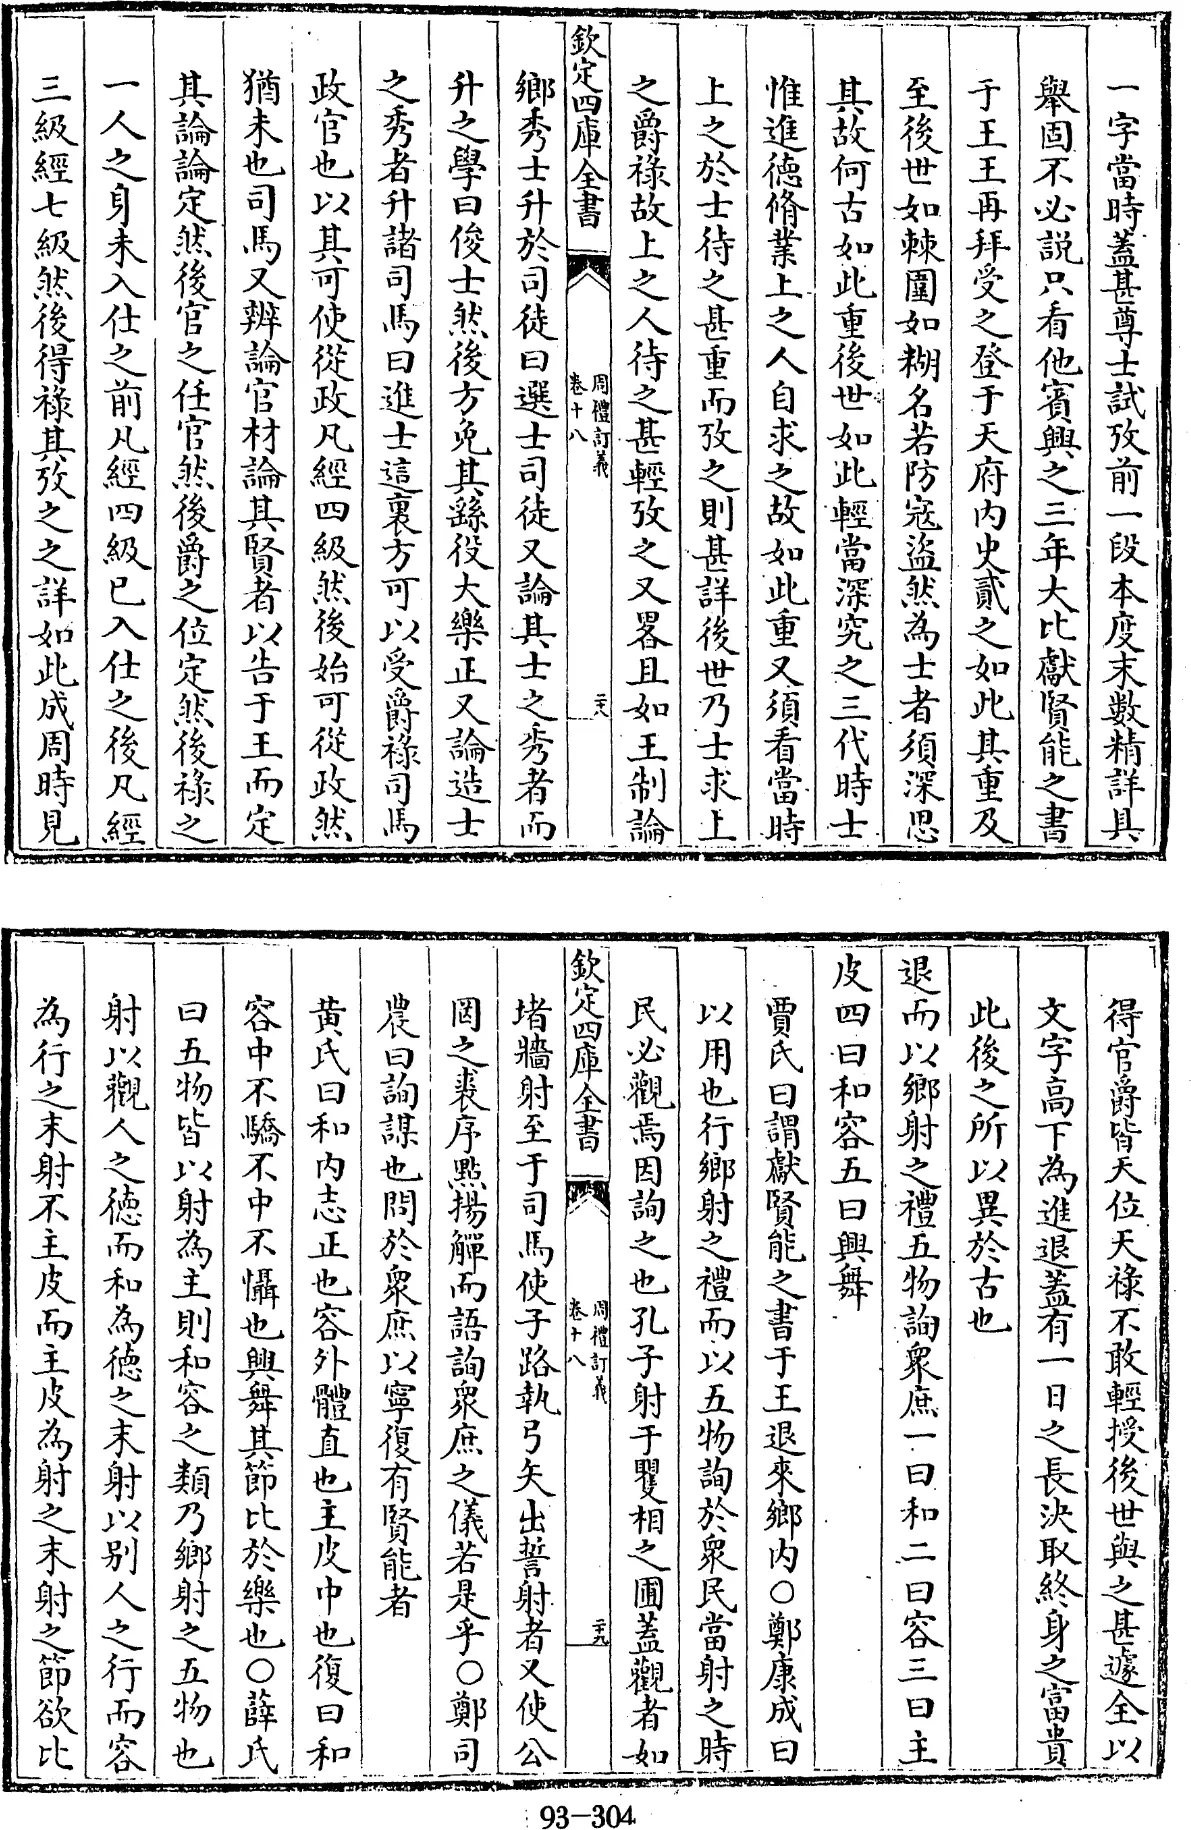 一字當時蓋甚尊士試攷前一段本度末數精詳具
舉固不必説只看他賓興之三年大比獻賢能之書
于王王再拜受之登于天府内史貳之如此其重及
至後世如棘圍如糊名若防宼盜然為士者須深思
其故何古如此重後世如此輕當深究之三代時士
惟進德脩業上之人自求之故如此重又須看當時
上之於士待之甚重而攷之則甚詳後世乃士求上
之爵祿故上之人待之甚輕攷之又畧且如王制論
欽定四庫全書
周禮訂義
卷十八
二十八
鄉秀士升於司徒曰選士司徒又論其士之秀者而
升之學曰俊士然後方免其繇役大樂正又論造士
之秀者升諸司馬曰進士這裏方可以受爵祿司馬
政官也以其可使從政凡經四級然後始可從政然
猶未也司馬又辨論官材論其賢者以告于王而定
其論論定然後官之任官然後爵之位定然後祿之
一人之身未入仕之前凡經四級已入仕之後凡經
三級經七級然後得祿其攷之之詳如此成周時見
得官爵皆天位天祿不敢輕授後世與之甚遽全以
文字高下為進退蓋有一日之長決取終身之富貴
此後之所以異於古也
退而以鄉射之禮五物詢衆庶一曰和二曰容三曰主
皮四曰和容五曰興舞
賈氏曰謂獻賢能之書于王退來鄉内○鄭康成曰
以用也行鄉射之禮而以五物詢於衆民當射之時
民必觀焉因詢之也孔子射于矍相之圃蓋觀者如
欽定四庫全書
周禮訂義
卷十八
二十九
堵牆射至于司馬使子路執弓矢出誓射者又使公
罔之裘序點揚觶而語詢衆庶之儀若是乎○鄭司
農曰詢謀也問於衆庶以寧復有賢能者
黄氏曰和内志正也容外體直也主皮中也復曰和
容中不驕不中不懾也興舞其節比於樂也○薛氏
曰五物皆以射為主則和容之類乃鄉射之五物也
射以觀人之德而和為德之末射以别人之行而容
為行之末射不主皮而主皮為射之末射之節欲比
93-304